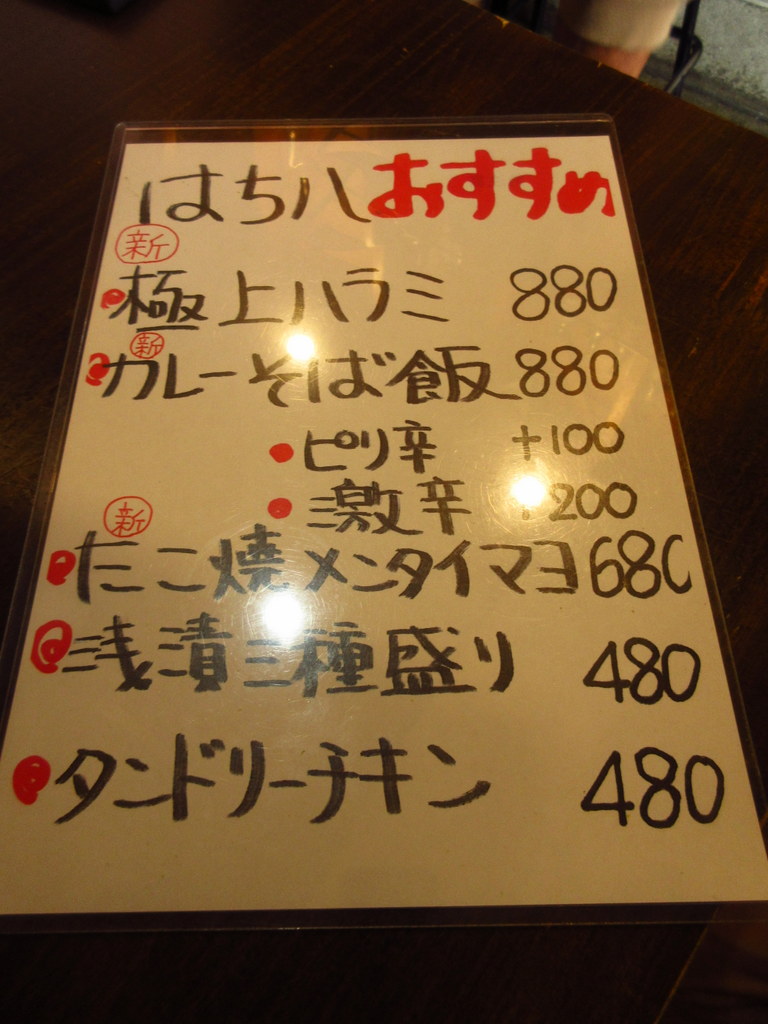 はち八おすすめ
新
極上ハラミ 880
新
カレーそば飯 880
ピリ辛 +100
激辛 +200
新
たこ焼メンタイマヨ 680
浅漬三種盛り 480
タンドリーチキン 480